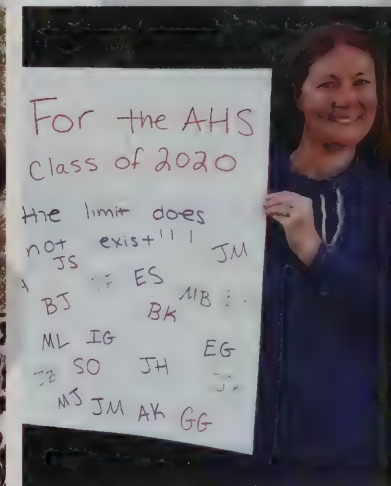 For the AHS
Class of 2020
the limit does
not exist!!!
JS JM
ES
BJ BK MB
ML IG EG
SO JH
MJ JM AK GG